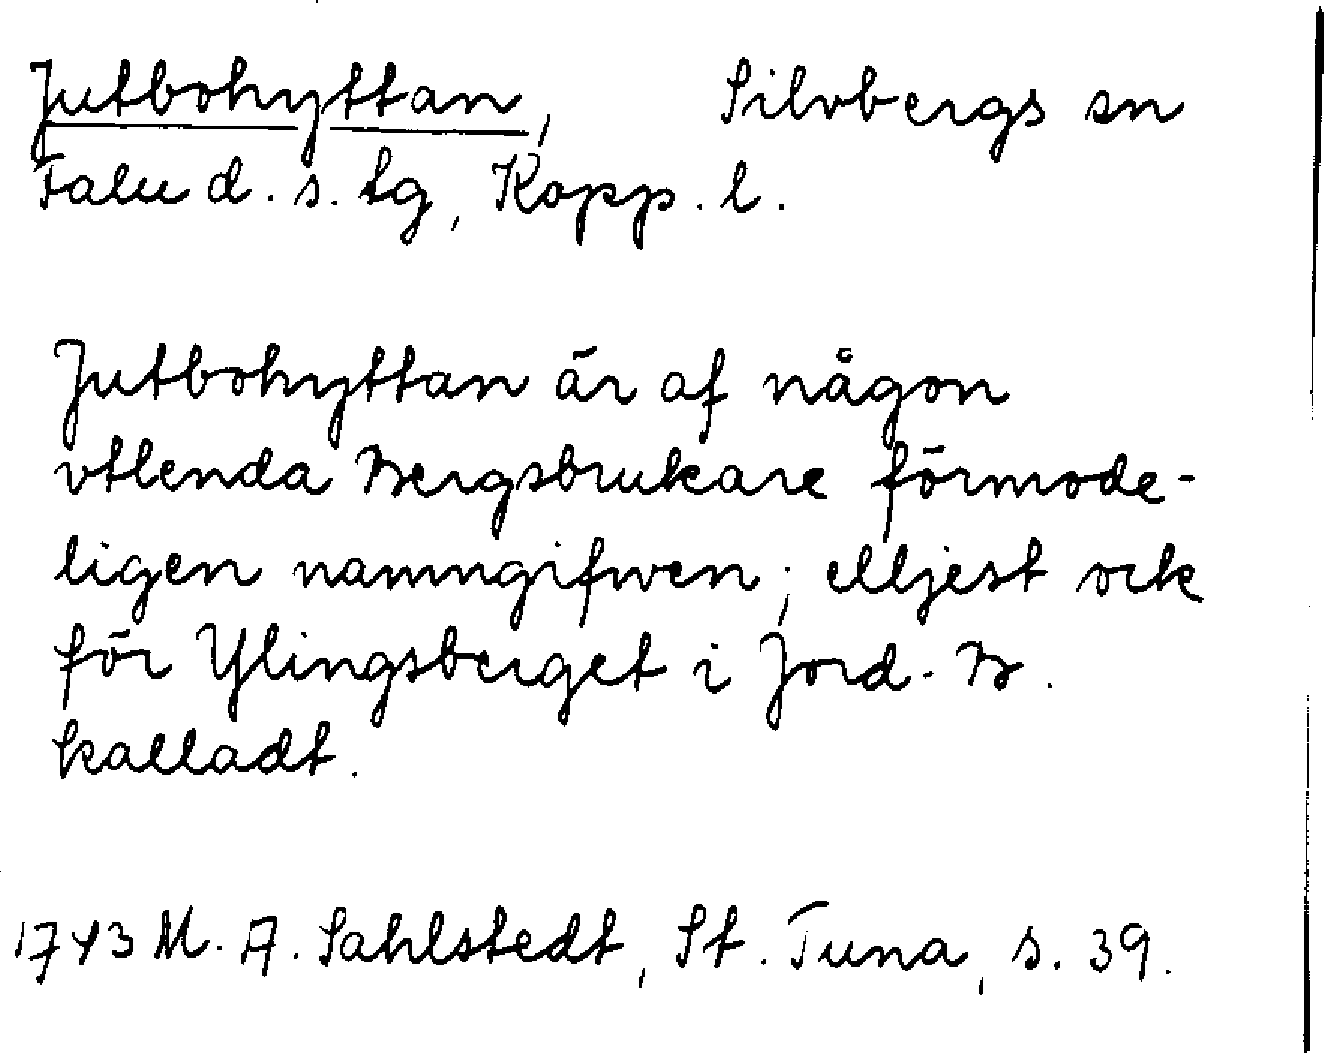 Jutbohyttan, Silvbergs sn
Falu d. s. tg, Kopp. l.
Jutbohyttan är af någon
vtlenda Bergsbrukare förmode-
ligen namngifwen; elljest ock
för Ylingsberget i Jord-B.
kalladt.
1743 M. A. Sahlstedt, St. Tuna, s. 39.